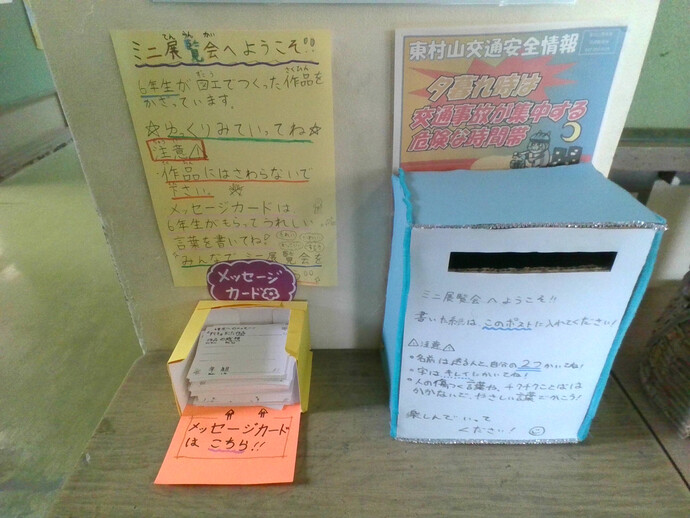 ミニ展覧会へようこそ!!
てんらんかい
6年生が図工でつくった作品を
かざっています。
☆ゆっくりみていってね☆
注意⚠
作品にはさわらないで
下さい。
メッセージカードは
6年生がもらってうれしい
言葉を書いてね!
みんなでミニ展覧会を
メッセージ
カード
メッセージカード
は こちら!!
東村山交通安全情報
夕暮れ時は
交通事故が集中する
危険な時間帯
ミニ展覧会へようこそ!!
書いた紙は このポストに入れてください!
⚠注意⚠
・名前は送る人と自分の2つかいてね!
・字は、キレイにかいてね!
・人の傷つく言葉や、チクチクことばは
かかないで、やさしい言葉でかこう!
楽しんでいって
ください!